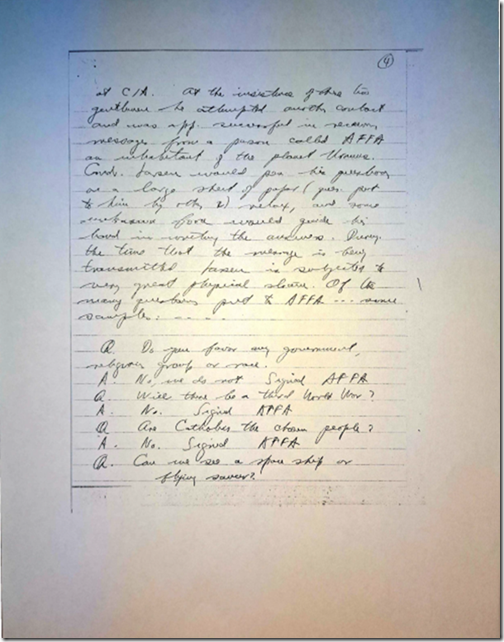 ④
at CIA. At the insistence of these two
gentlemen he attempted another contact
and was app. successful in receiving
messages from a person called AFFA
an inhabitant of the planet Uranus.
Cmdr. Larsen would pen his questions
on a large sheet of paper (ques. put
to him by others) relax, and some
unknown force would guide his
hand in writing the answers. During
the time that the message is being
transmitted Larsen is subjected to
very great physical strain. Of the
many questions put to AFFA --- some
samples: - - - .
Q. Do you favor any government,
religious group or race.
A. No, we do not Signed AFFA
Q. Will there be a third World War?
A. No. Signed AFFA
Q. Are Catholics the chosen people?
A. No. Signed AFFA
Q. Can we see a space ship or
flying saucer?